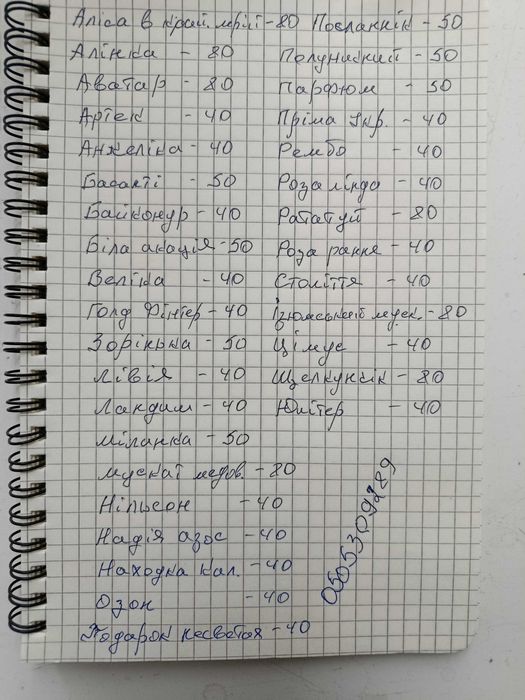 Аліса в край. мрій - 80
Алінка - 80
Аватар - 80
Артек - 40
Анжеліка - 40
Басанті - 50
Байконур - 40
Біла акація - 50
Веліка - 40
Голд Фінгер - 40
Зорінька - 50
Лівія - 40
Ландиш - 40
Міланка - 50
Мускат медов. - 80
Нільсон - 40
Надія азос - 40
Находка кал. - 40
Озон - 40
Подарок несветая - 40
Посланнік - 50
Полуничний - 50
Парфюм - 50
Пріма Укр. - 40
Рембо - 40
Розалінда - 40
Рататуй - 80
Роза рання - 40
Століття - 40
Ізюмський муск. - 80
Цімус - 40
Щелкунсік - 80
Юпітер - 40
0505309289